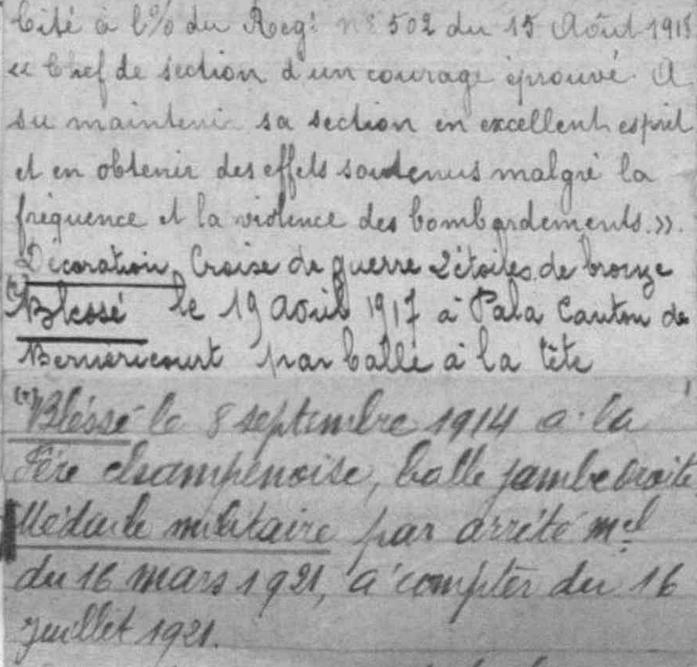 Cité à l'o/o du Regt n° 502 du 15 Août 1918
« Chef de section d'un courage éprouvé. A
su maintenir sa section en excellent esprit
et en obtenir des effets soutenus malgré la
fréquence et la violence des bombardements. ».
Décoration, Croise de guerre 2 étoiles de bronze
Blessé le 19 avril 1917 à Pala Canton de
Berniéricourt par balle à la tête
(+) Bléssé le 8 septembre 1914 a la
Fère champenoise, balle jambe droite
Médaille militaire par arrêté mel
du 16 mars 1921, à compter du 16
juillet 1921.